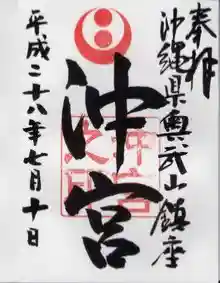 奉拝
沖縄県奥武山鎮座
沖宮
沖宮之印
平成二十八年七月十日